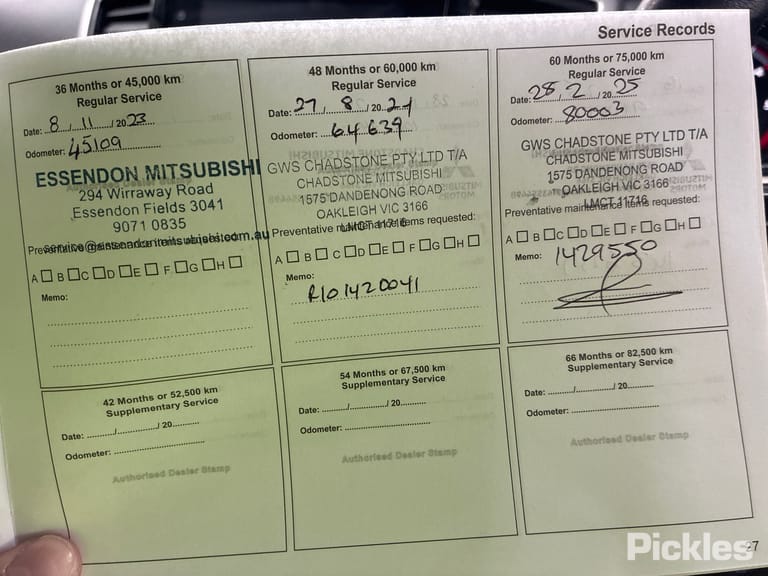 Service Records
36 Months or 45,000 km
Regular Service
Date: 8 / 11 / 2023
Odometer: 45109
ESSENDON MITSUBISHI
294 Wirraway Road
Essendon Fields 3041
9071 0835
service@essendonmitsubishi.com.au
Preventative maintenance items requested:
A B C D E F G H
Memo:
48 Months or 60,000 km
Regular Service
Date: 27 / 8 / 2024
Odometer: 64639
GWS CHADSTONE PTY LTD T/A
CHADSTONE MITSUBISHI
1575 DANDENONG ROAD
OAKLEIGH VIC 3166
LMCT 11716
Preventative maintenance items requested:
A B C D E F G H
Memo:
R101420041
60 Months or 75,000 km
Regular Service
Date: 28 / 2 / 2025
Odometer: 80003
GWS CHADSTONE PTY LTD T/A
CHADSTONE MITSUBISHI
1575 DANDENONG ROAD
OAKLEIGH VIC 3166
LMCT 11716
Preventative maintenance items requested:
A B C D E F G H
Memo: 1429550
42 Months or 52,500 km
Supplementary Service
Date: ........../............../ 20..........
Odometer: ..............................
Authorised Dealer Stamp
54 Months or 67,500 km
Supplementary Service
Date: ........../............../ 20..........
Odometer: ..............................
Authorised Dealer Stamp
66 Months or 82,500 km
Supplementary Service
Date: ........../............../ 20..........
Odometer: ..............................
Authorised Dealer Stamp
27
Pickles